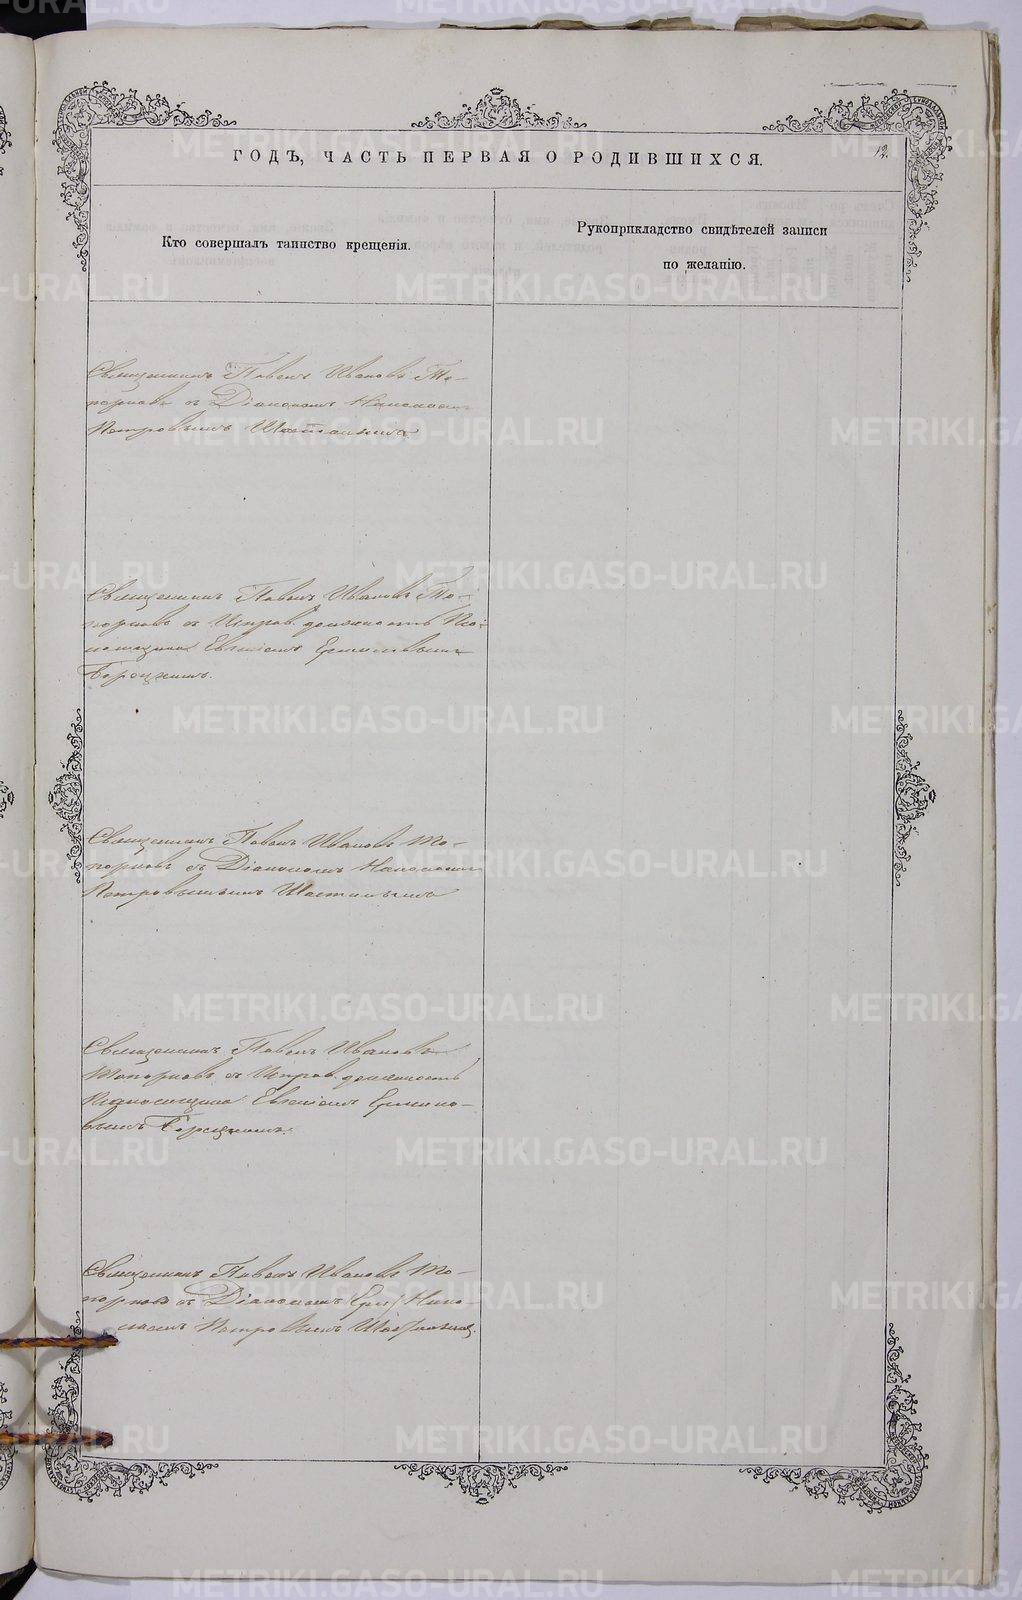 12.
ГОДЪ, ЧАСТЬ ПЕРВАЯ О РОДИВШИХСЯ.
Кто совершалъ таинство крещенія.
Рукоприкладство свидѣтелей записи
по желанію.
Священникъ Павелъ Ивановъ То-
порковъ съ Діакономъ Николаемъ
Петровымъ
Священникъ Павелъ Ивановъ То-
порковъ съ Исправ. должность Пса-
ломщика Евгеніемъ
Священникъ Павелъ Ивановъ То-
порковъ съ Діакономъ Николаемъ
Петровымъ
Священникъ Павелъ Ивановъ
Топорковъ съ Исправ. должность
Псаломщика Евгеніемъ
Священникъ Павелъ Ивановъ То-
порковъ съ Діакономъ Нико-
лаемъ Петровымъ
METRIKI.GASO-URAL.RU